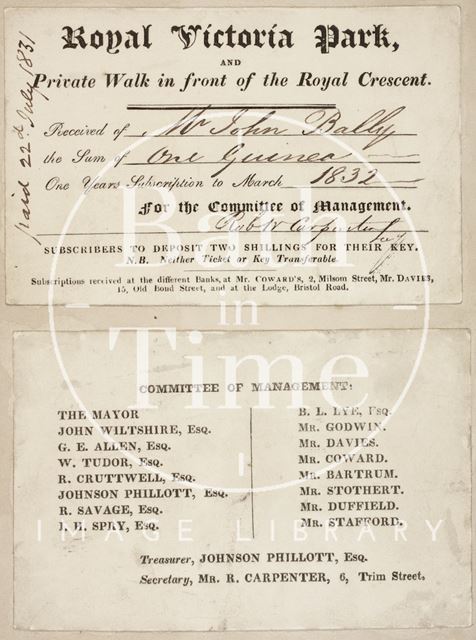 Royal Victoria Park,
AND
Private Walk in front of the Royal Crescent.
paid 22d July 1831
Received of Mr John Bally
the Sum of One Guinea
One Years Subscription to March 1832
For the Committee of Management.
Robt Carpenter
SUBSCRIBERS TO DEPOSIT TWO SHILLINGS FOR THEIR KEY.
N.B. Neither Ticket or Key Transferable.
Subscriptions received at the different Banks, at Mr. COWARD'S, 2, Milsom Street, Mr. DAVIES,
15, Old Bond Street, and at the Lodge, Bristol Road.
COMMITTEE OF MANAGEMENT:
THE MAYOR
JOHN WILTSHIRE, Esq.
G. E. ALLEN, Esq.
W. TUDOR, Esq.
R. CRUTTWELL, Esq.
JOHNSON PHILLOTT, Esq.
R. SAVAGE, Esq.
J. H. SPRY, Esq.
B. L. LYE, Esq.
Mr. GODWIN.
Mr. DAVIES.
Mr. COWARD.
Mr. BARTRUM.
Mr. STOTHERT.
Mr. DUFFIELD.
Mr. STAFFORD.
Treasurer, JOHNSON PHILLOTT, Esq.
Secretary, Mr. R. CARPENTER, 6, Trim Street.
Bath
in
Time
IMAGE LIBRARY